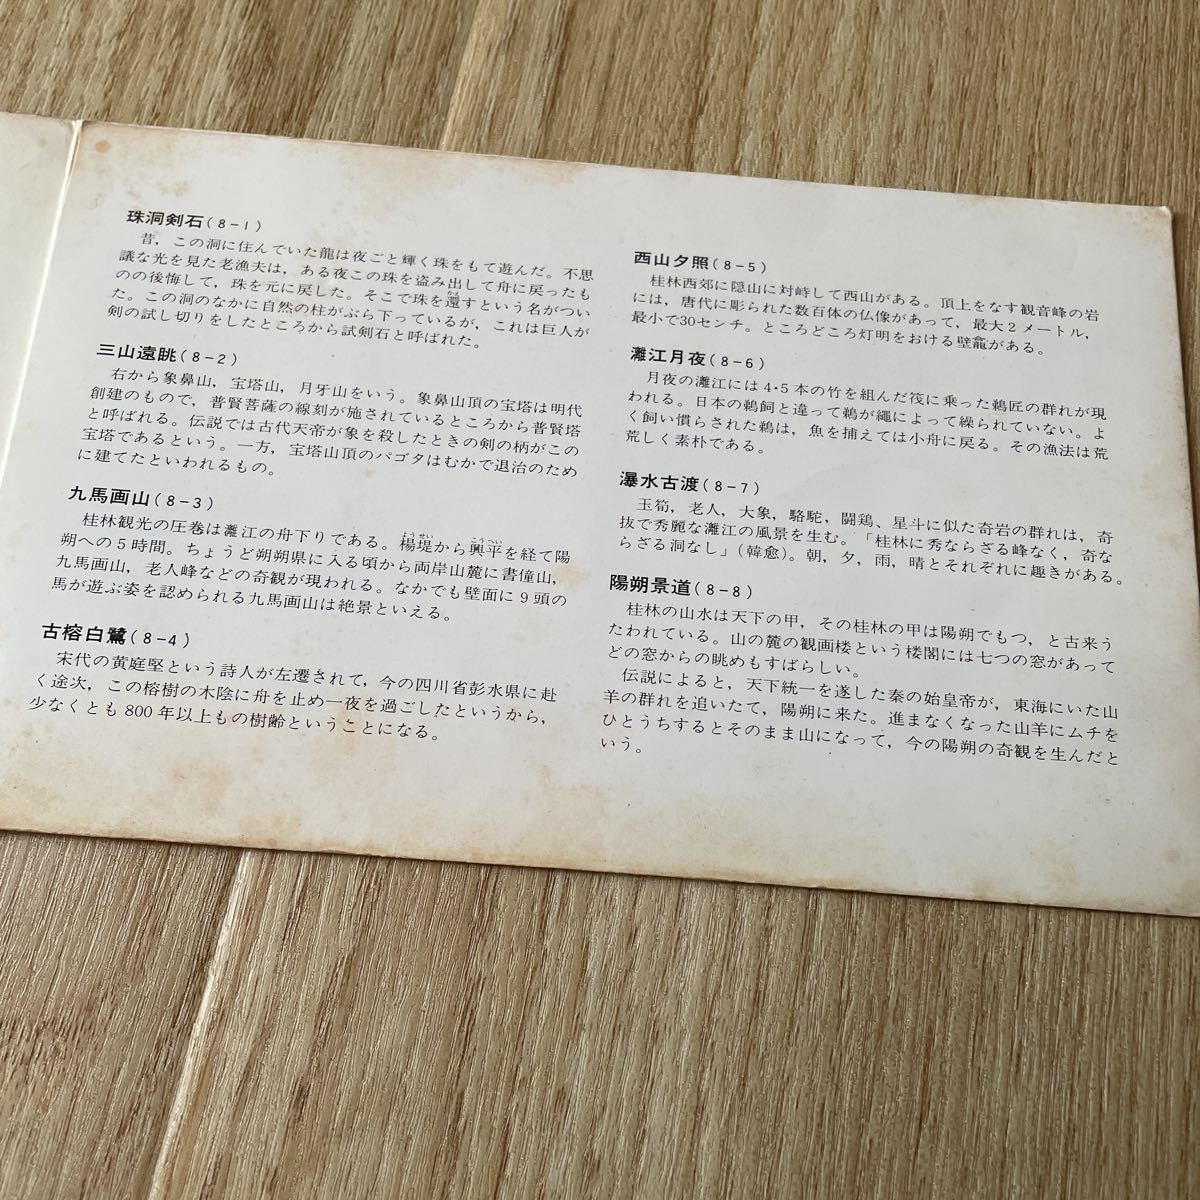 珠洞剣石(8-1)
昔，この洞に住んでいた龍は夜ごと輝く珠をもて遊んだ。不思
議な光を見た老漁夫は，ある夜この珠を盗み出して舟に戻ったも
のの後悔して，珠を元に戻した。そこで珠を還すという名がつい
た。この洞のなかに自然の柱がぶら下っているが，これは巨人が
剣の試し切りをしたところから試剣石と呼ばれた。
三山遠眺(8-2)
右から象鼻山，宝塔山，月牙山をいう。象鼻山頂の宝塔は明代
創建のもので，普賢菩薩の線刻が施されているところから普賢塔
と呼ばれる。伝説では古代天帝が象を殺したときの剣の柄がこの
宝塔であるという。一方，宝塔山頂のパゴタはむかで退治のため
に建てたといわれるもの。
九馬画山(8-3)
桂林観光の圧巻は灕江の舟下りである。楊堤から興平を経て陽
朔への5時間。ちょうど朔朔県に入る頃から両岸山麓に書僮山，
九馬画山，老人峰などの奇観が現われる。なかでも壁面に9頭の
馬が遊ぶ姿を認められる九馬画山は絶景といえる。
古榕白鷺(8-4)
宋代の黄庭堅という詩人が左遷されて，今の四川省彭水県に赴
く途次，この榕樹の木陰に舟を止め一夜を過ごしたというから，
少なくとも800年以上もの樹齢ということになる。
西山夕照(8-5)
桂林西郊に隠山に対峙して西山がある。頂上をなす観音峰の岩
には，唐代に彫られた数百体の仏像があって，最大2メートル，
最小で30センチ。ところどころ灯明をおける壁龕がある。
灕江月夜(8-6)
月夜の灕江には4・5本の竹を組んだ筏に乗った鵜匠の群れが現
われる。日本の鵜飼と違って鵜が縄によって繰られていない。よ
く飼い慣らされた鵜は，魚を捕えては小舟に戻る。その漁法は荒
荒しく素朴である。
瀑水古渡(8-7)
玉筍，老人，大象，駱駝，闘鶏、星斗に似た奇岩の群れは，奇
抜で秀麗な灕江の風景を生む。「桂林に秀ならざる峰なく，奇な
らざる洞なし」(韓愈)。朝，夕，雨，晴とそれぞれに趣きがある。
陽朔景道(8-8)
桂林の山水は天下の甲，その桂林の甲は陽朔でもつ，と古来う
たわれている。山の麓の観画楼という楼閣には七つの窓があって
どの窓からの眺めもすばらしい。
伝説によると，天下統一を遂した秦の始皇帝が，東海にいた山
羊の群れを追いたて，陽朔に来た。進まなくなった山羊にムチを
ひとうちするとそのまま山になって，今の陽朔の奇観を生んだと
いう。